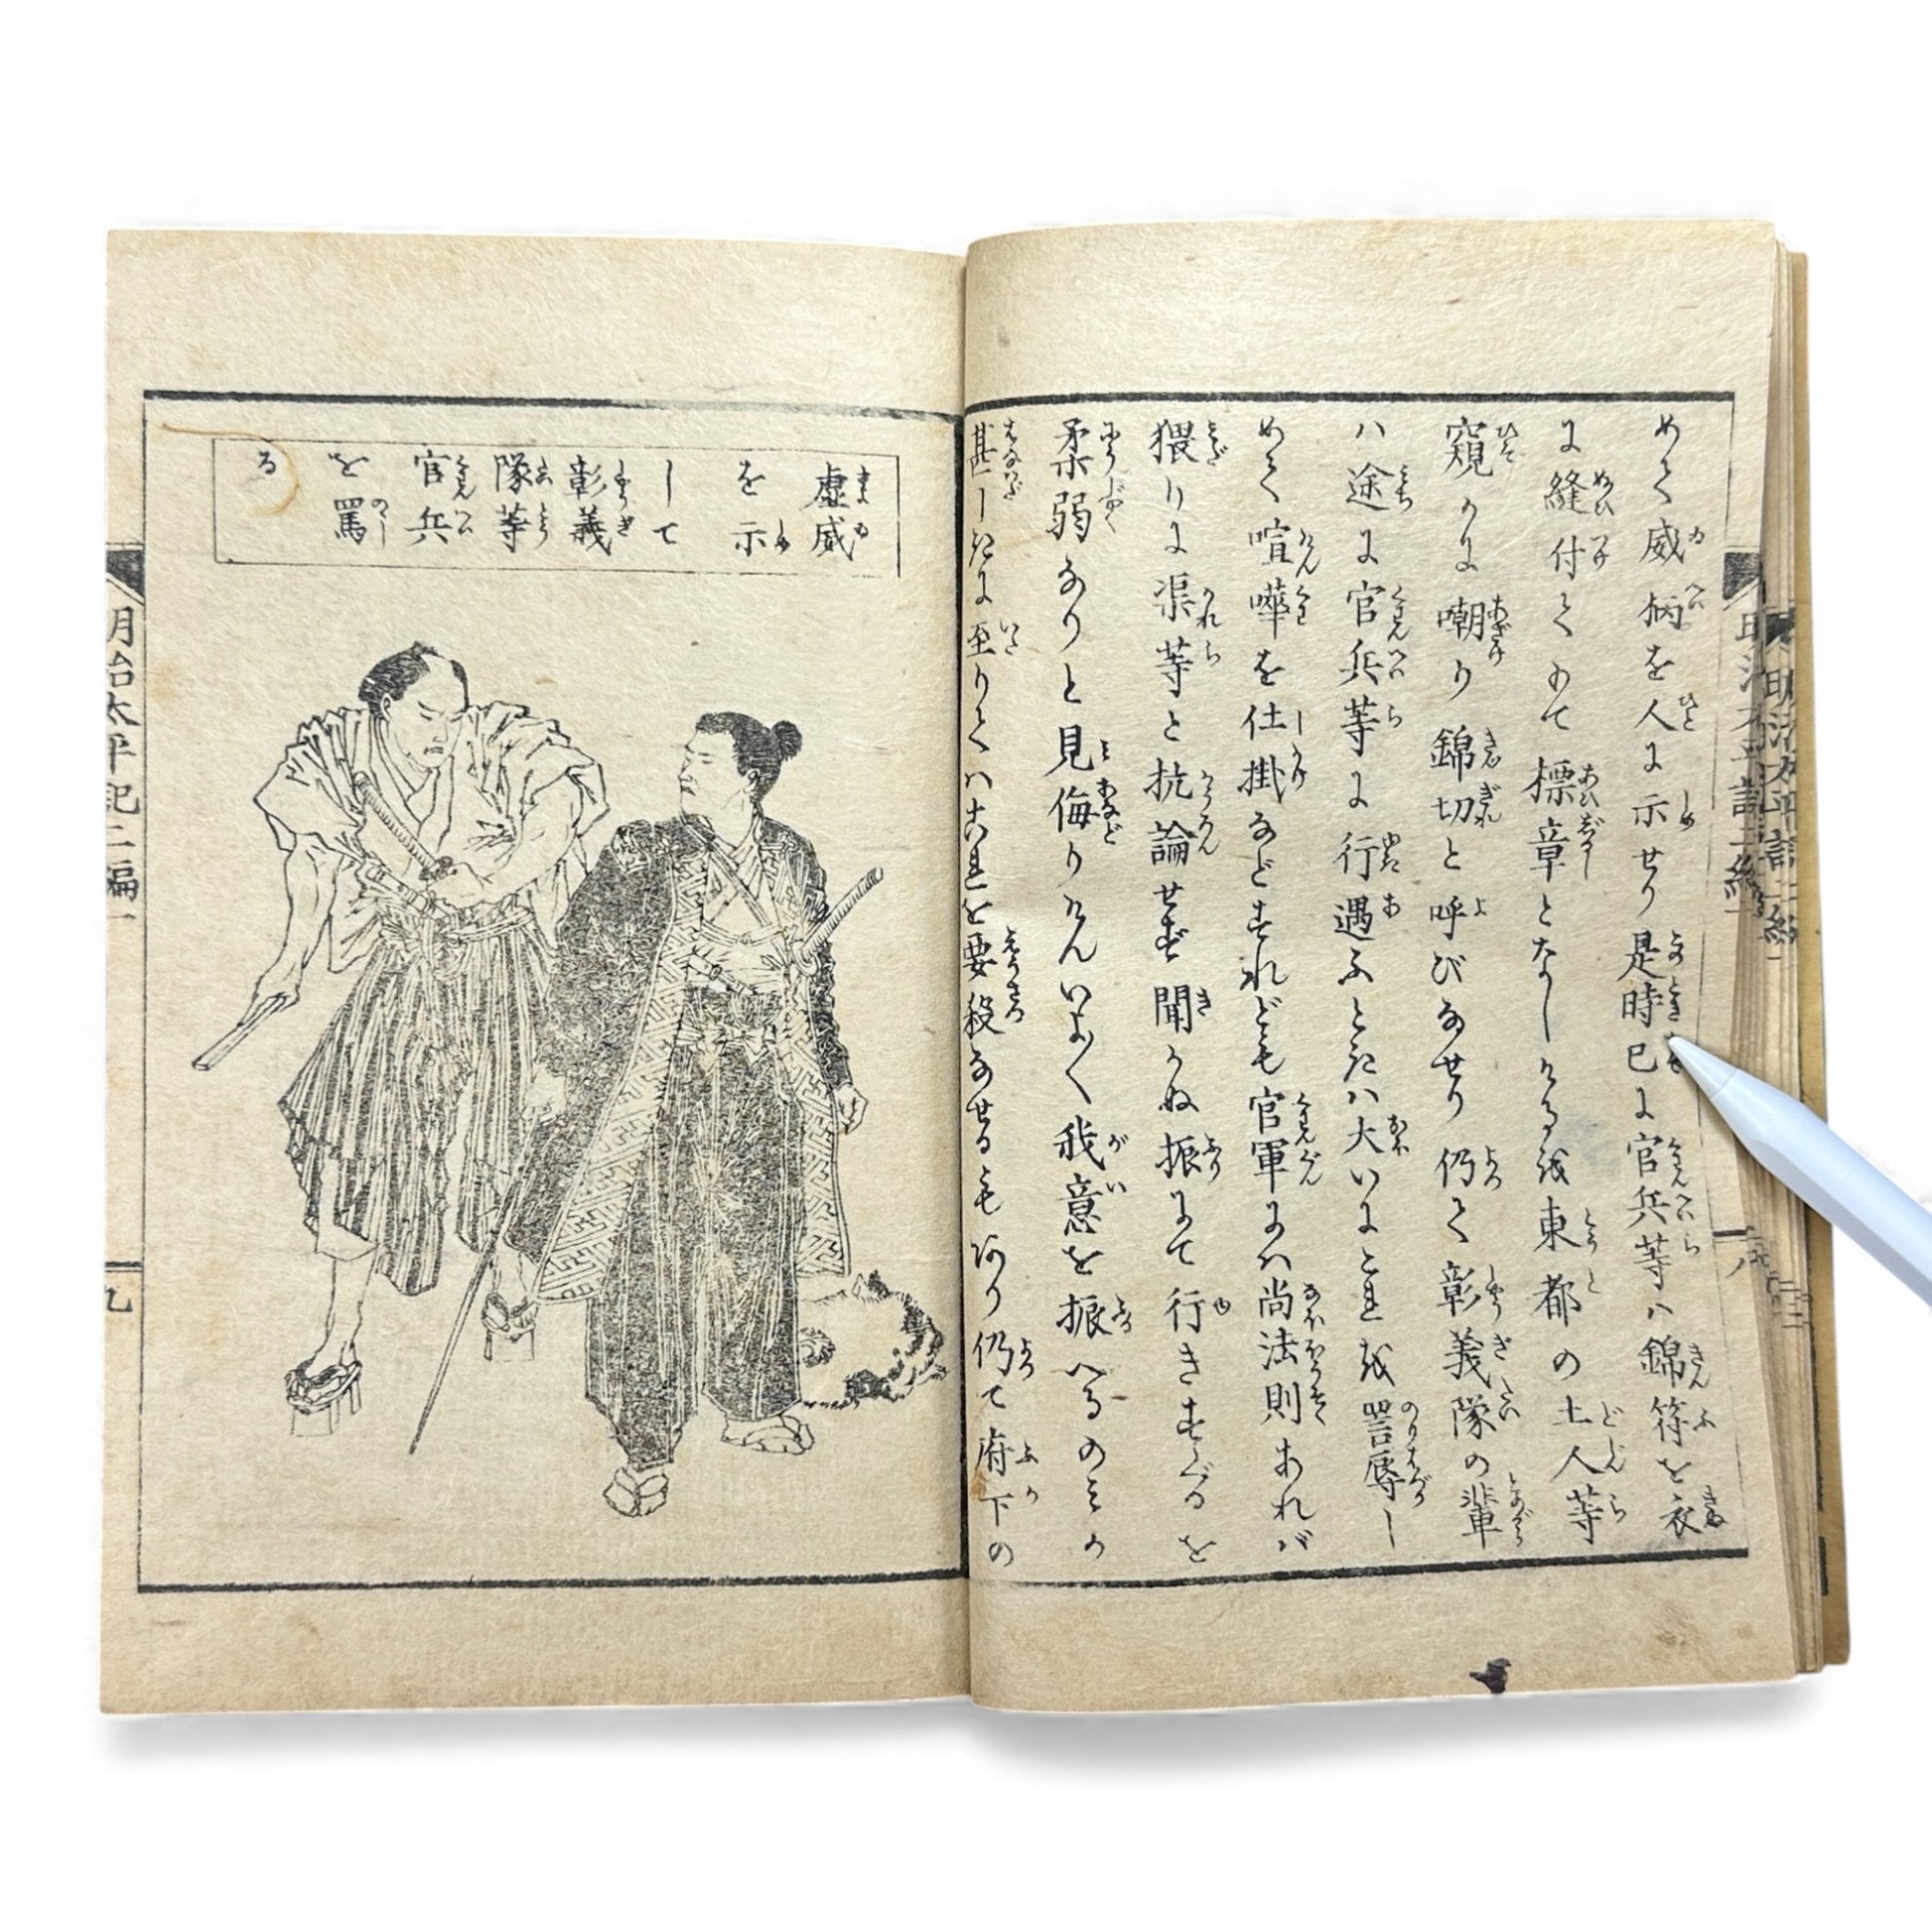 めて威柄を人に示せり是時已に官兵等ハ錦符を衣
に縫付てもて標章となしけるを東都の土人等
窺かに嘲り錦切と呼びなせり仍て彰義隊の輩
ハ途に官兵等に行遇ふときハ大いにこれを詈辱し
めて喧嘩を仕掛などすれども官軍にハ尚法則あれバ
猥りに渠等と抗論せず聞かぬ振にて行きすぐるを
柔弱なりと見侮りけんいよ〱我意を振へるのミか
甚しきに至りてハこれを要殺なせるもあり仍て府下の
虚威
を示
して
彰義
隊等
官兵
を罵
る
明治太平記二編一
九